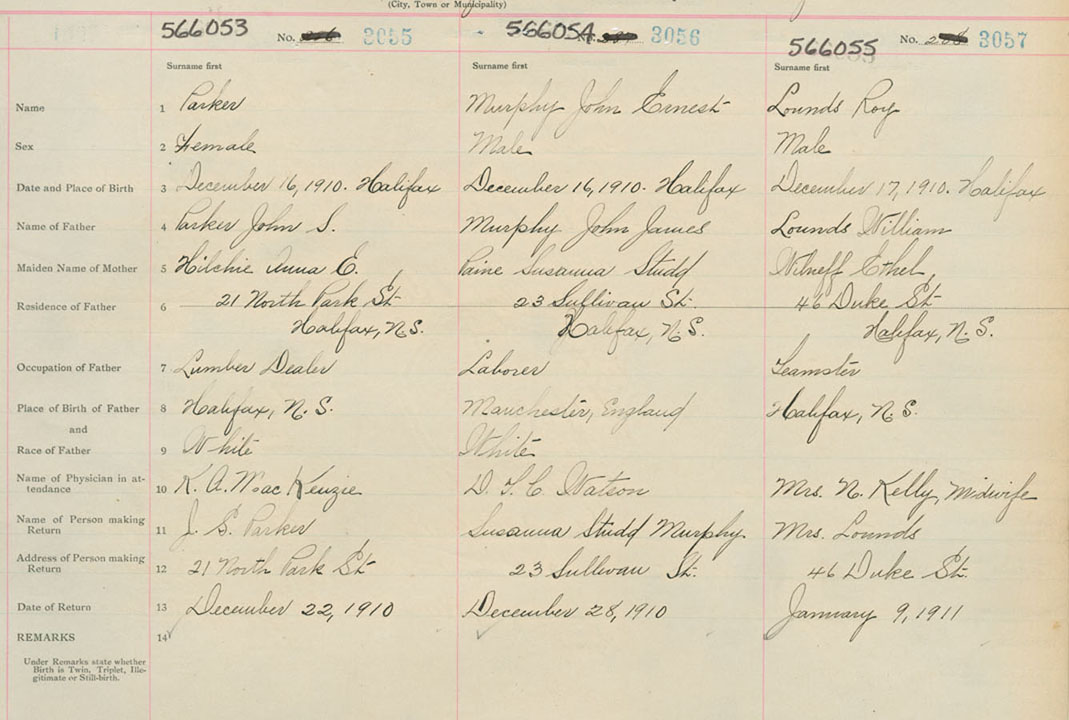 (City, Town or Municipality)
566053 No. 3055 566054 3056 566055 No. 3057
Surname first Surname first Surname first
Name 1 Parker Murphy John Ernest Lounds Roy
Sex 2 Female Male Male
Date and Place of Birth 3 December 16, 1910. Halifax December 16, 1910. Halifax December 17, 1910. Halifax
Name of Father 4 Parker John S. Murphy John James Lounds William
Maiden Name of Mother 5 Hilchie Anna E. Paine Susanna Studd Ethel,
Residence of Father 6 21 North Park St. 23 Sullivan St. 46 Duke St
Halifax, N.S. Halifax, N.S. Halifax, N.S.
Occupation of Father 7 Lumber Dealer Laborer Teamster
Place of Birth of Father 8 Halifax, N.S. Manchester, England Halifax, N.S.
and
Race of Father 9 White White
Name of Physician in at-
tendance 10 K. A. MacKenzie Watson Mrs. N. Kelly, Midwife
Name of Person making
Return 11 J. S. Parker Susanna Studd Murphy. Mrs. Lounds
Address of Person making
Return 12 21 North Park St 23 Sullivan St. 46 Duke St.
Date of Return 13 December 22, 1910 December 28, 1910 January 9, 1911
REMARKS 14
Under Remarks state whether
Birth is Twin, Triplet, Ille-
gitimate or Still-birth.